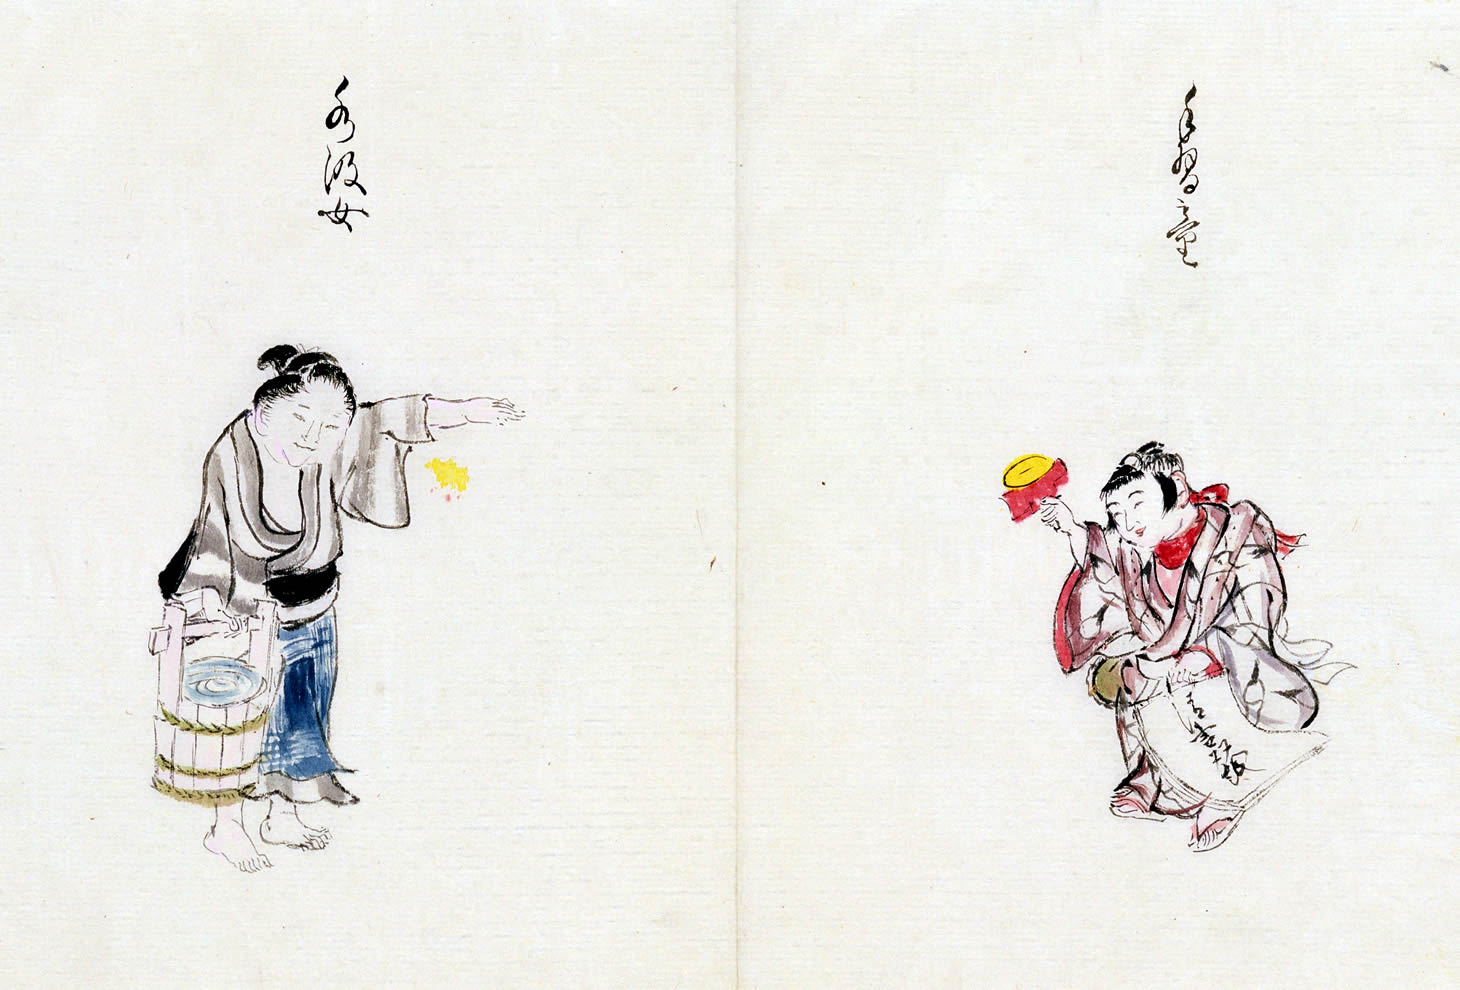 手習童
水汲女